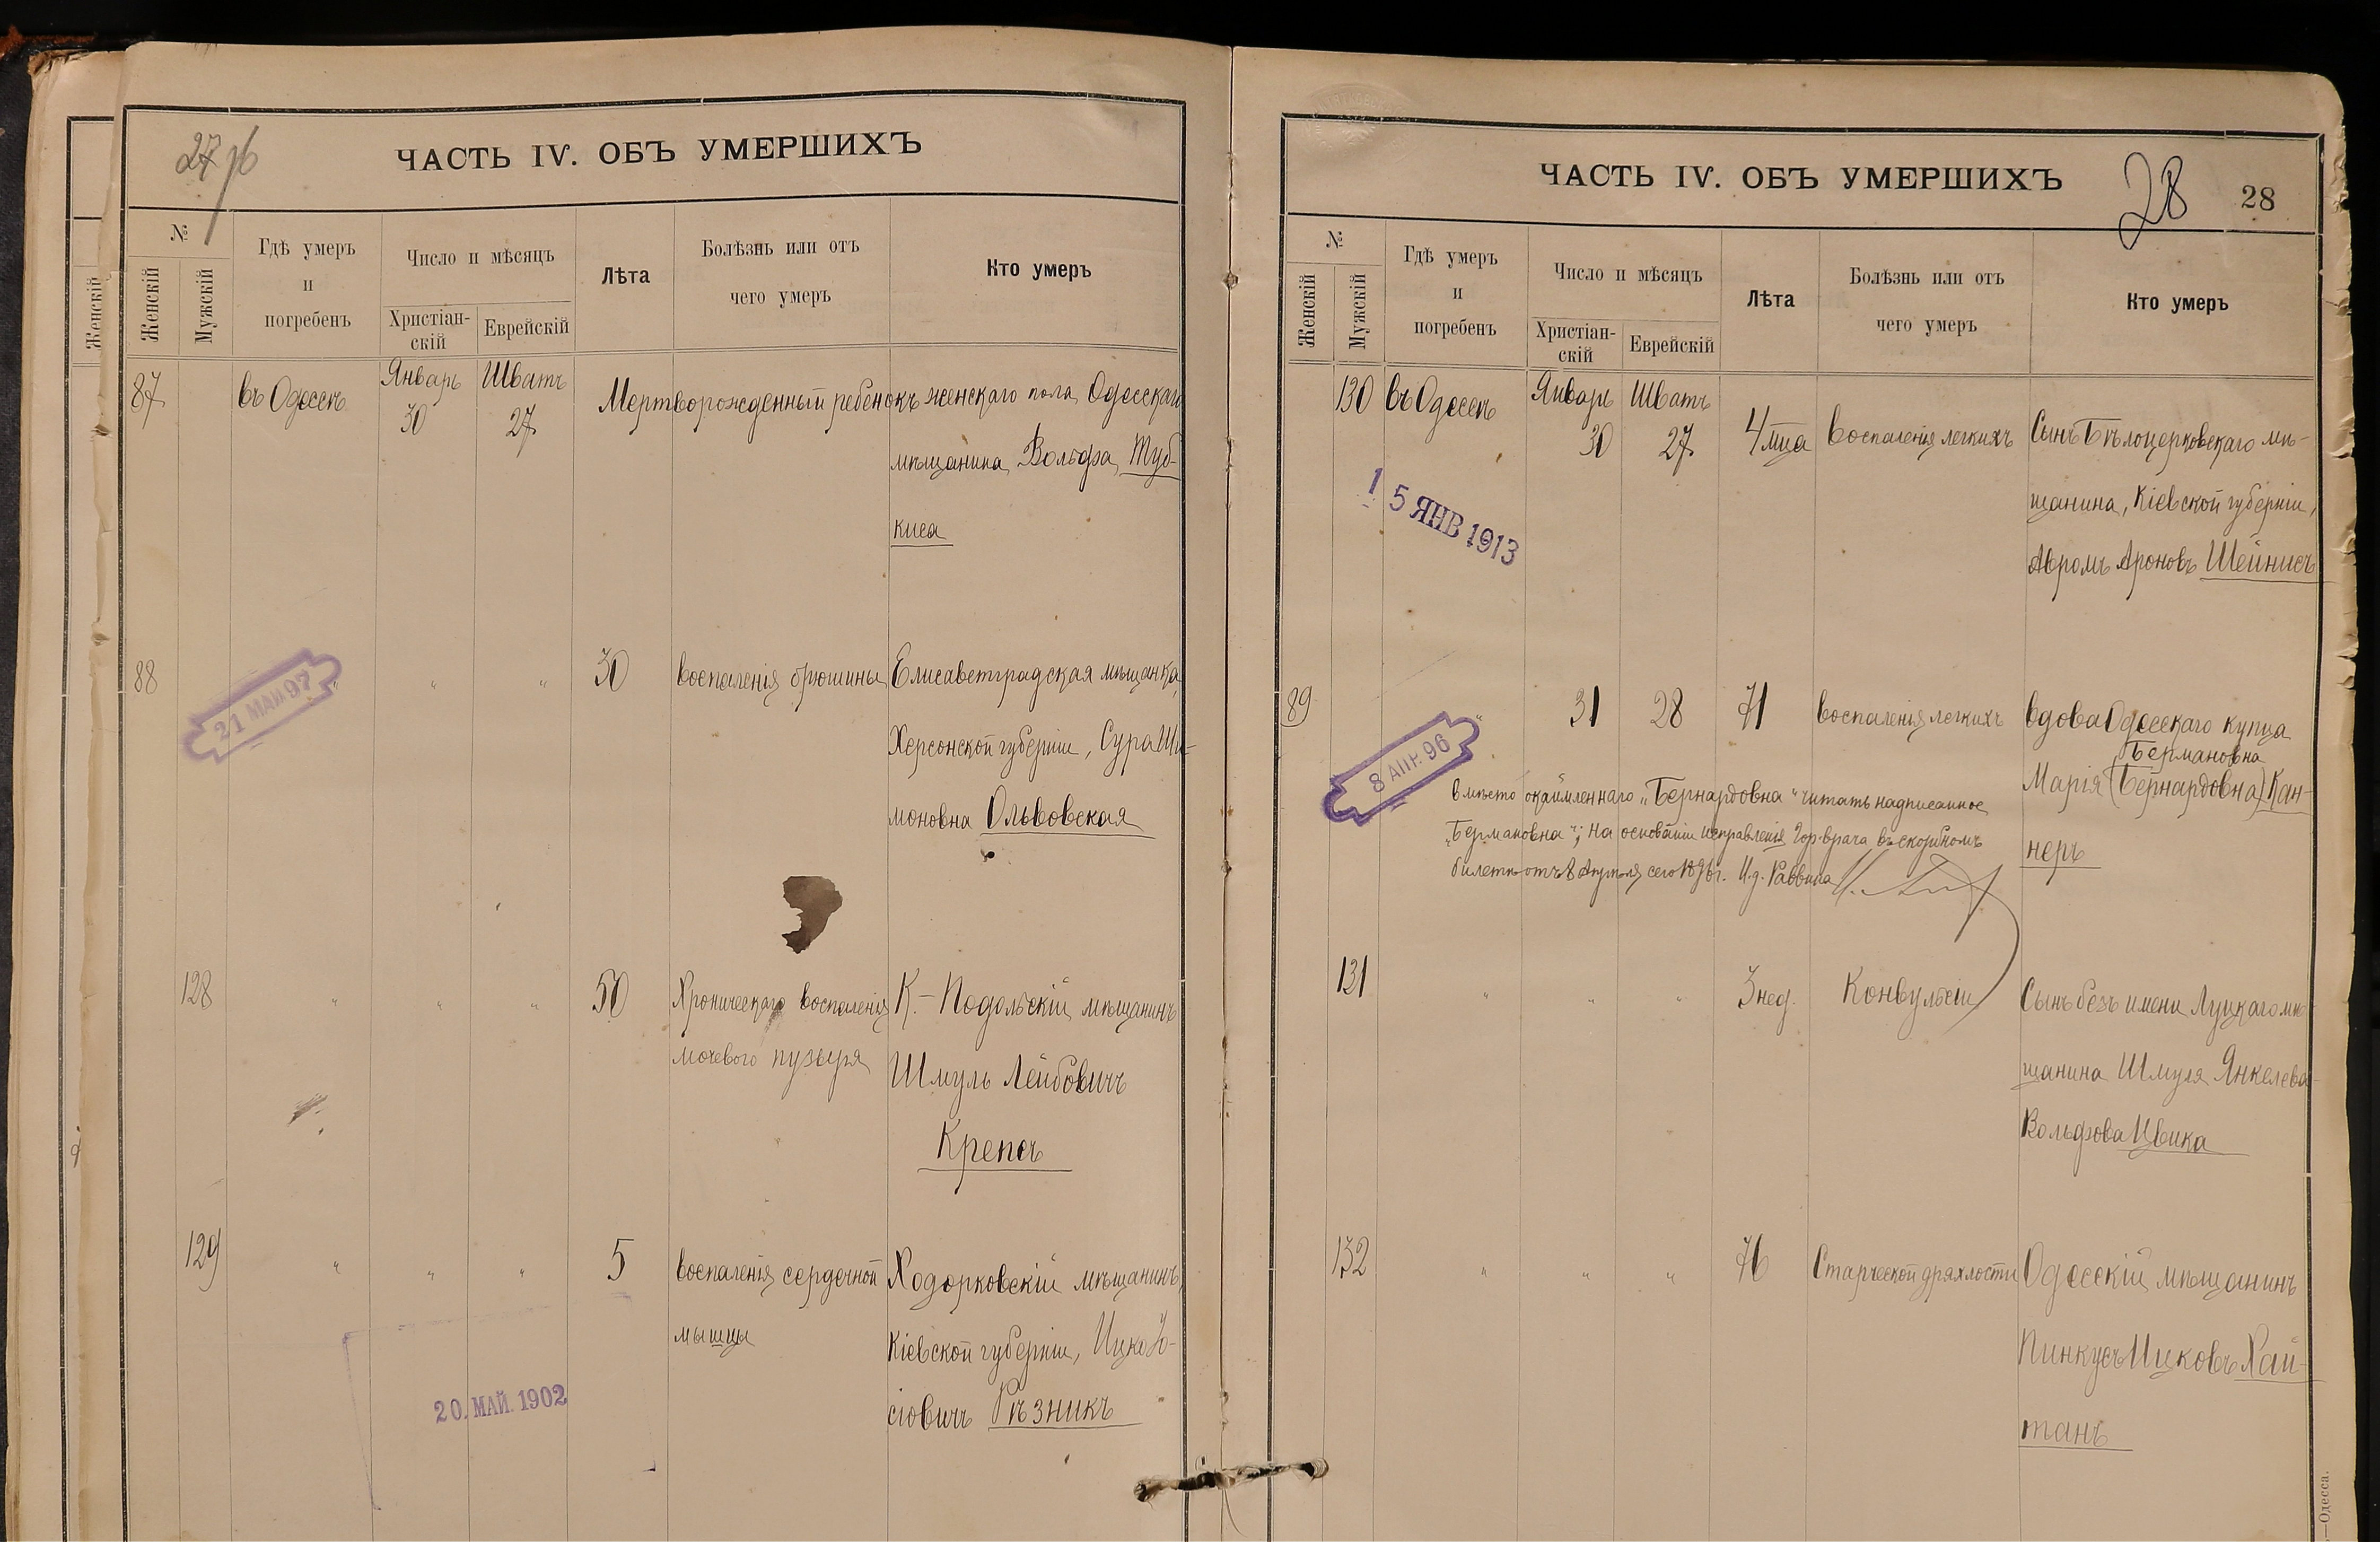 27 об
ЧАСТЬ IV. ОБЪ УМЕРШИХЪ
№
Женскій
Женскій
Мужскій
Гдѣ умеръ
и
погребенъ
Число и мѣсяцъ
Христіан-
скій
Еврейскій
Лѣта
Болѣзнь или отъ
чего умеръ
Кто умеръ
87 въ Одессѣ Январь 30 Шватъ 27 Мертворожденный ребенокъ женскаго пола Одесскаго
мѣщанина Вольфа Туб-
киса
88 " " " 30 воспаленія брюшины Елисаветградская мѣщанка,
21 МАЙ 97
Херсонской губерніи, Сура Ши-
моновна Ольвовская
128 " " " 50 Хроническаго воспаленія К.-Подольскій мѣщанинъ
мочевого пузыря Шмуль Лейбовичъ
Крепсъ
129 " " " 5 воспаленія сердечной Ходорковскій мѣщанинъ,
мышцы Кіевской губерніи, Ицко Іо-
сіовичъ Рѣзникъ
20. МАЙ. 1902
ЧАСТЬ IV. ОБЪ УМЕРШИХЪ
28
28
№
Женскій
Мужскій
Гдѣ умеръ
и
погребенъ
Число и мѣсяцъ
Христіан-
скій
Еврейскій
Лѣта
Болѣзнь или отъ
чего умеръ
Кто умеръ
130 въ Одессѣ Январь 30 Шватъ 27 4 мца воспаленія легкихъ Сынъ Бѣлоцерковскаго мѣ-
щанина, Кіевской губерніи,
Авромъ Ароновъ Шейнисъ
1 5 ЯНВ 1913
89 " 31 28 71 воспаленія легкихъ вдова Одесскаго купца
Бермановна
Марія (Бернардовна) Кан-
неръ
8 АПР. 96
вмѣсто окаймленнаго „Бернардовна" читать надписанное
„Бермановна"; на основаніи исправленія Гор. врача въ скорбномъ
билетѣ отъ 8 Апрѣля сего 1896 г. И.д. Раввина
131 " " " 3 нед. Конвульсіи Сынъ безъ имени Луцкаго мѣ-
щанина Шмуля Янкелева-
Вольфова Цвика
132 " " " 76 Старческой дряхлости Одесскій мѣщанинъ
Пинкусъ Ицковъ Хай-
танъ
—Одесса.